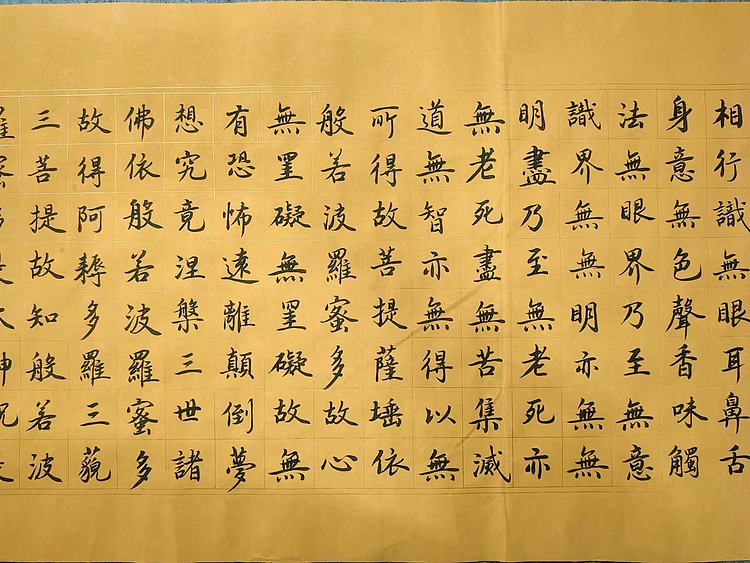 相行識無眼耳鼻舌
身意無色聲香味觸
法無眼界乃至無意
識界無無明亦無無
明盡乃至無老死亦
無老死盡無苦集滅
道無智亦無得以無
所得故菩提薩埵依
般若波羅蜜多故心
無罣礙無罣礙故無
有恐怖遠離顛倒夢
想究竟涅槃三世諸
佛依般若波羅蜜多
故得阿耨多羅三藐
三菩提故知般若波